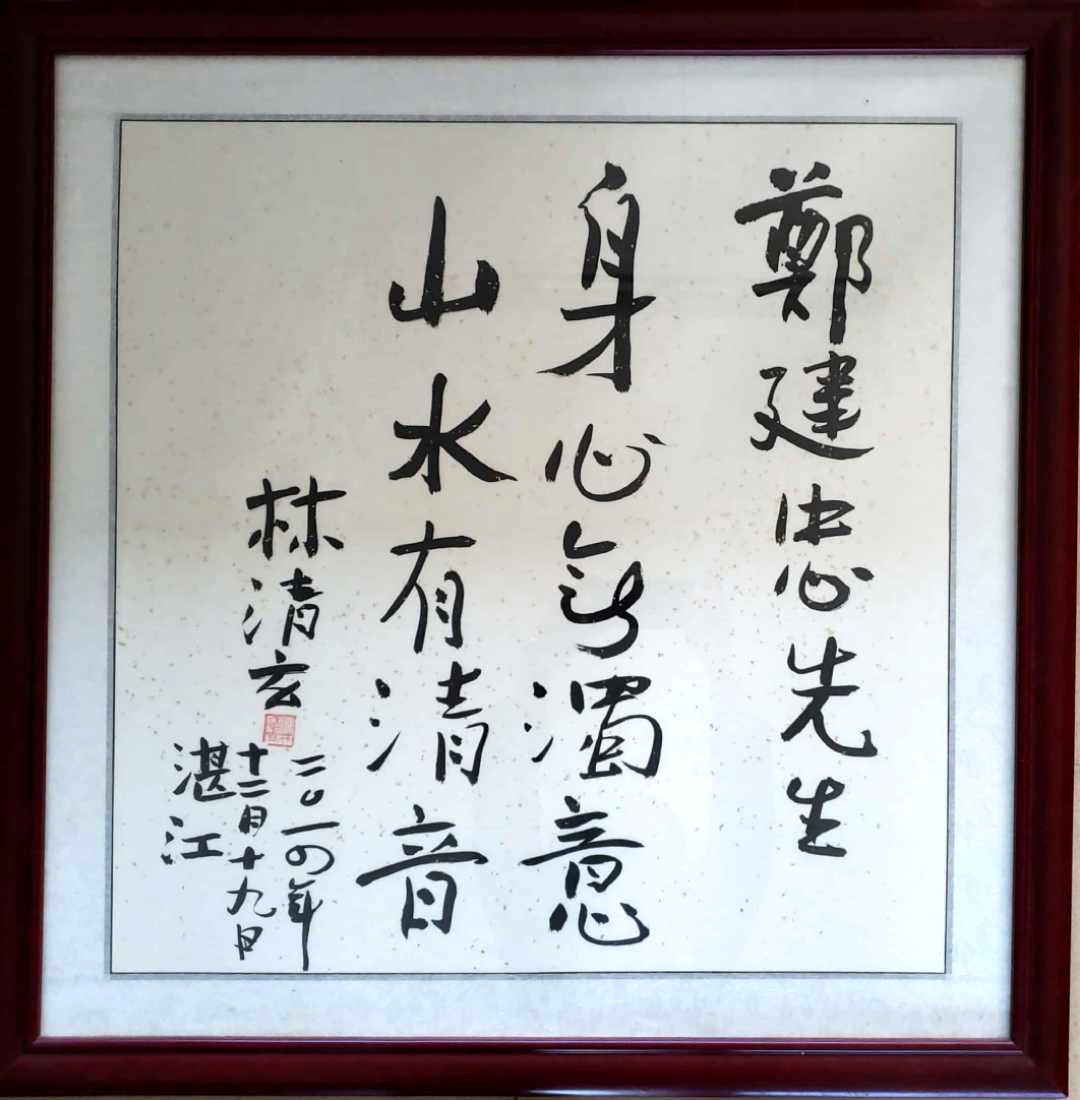 鄭建忠先生
身心無濁意
山水有清音
林清玄
二〇一四年
十二月十九日
湛江